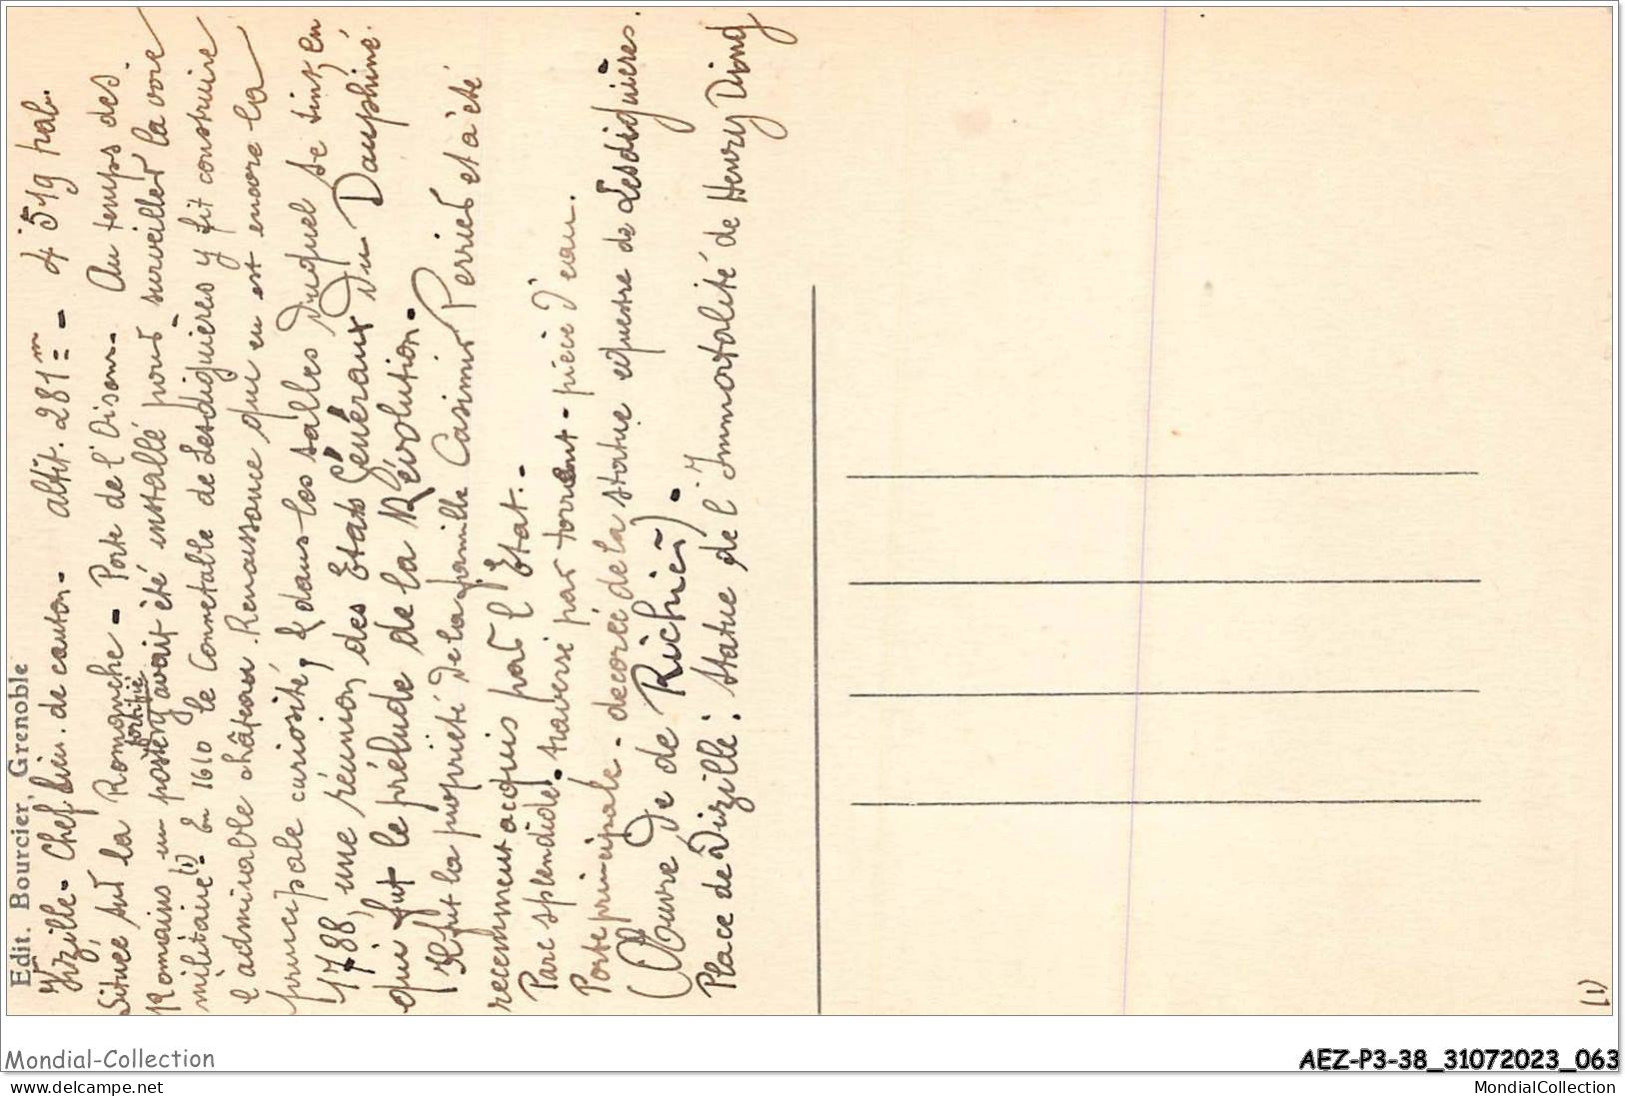 Edit. Bourcier, Grenoble
Vizille - Chef lieu. de canton - altit. 281m = - 4 519 hab.
Située, sur la Romanche - Porte de l'Oisans. Au temps des
Romains un poste fortifié y avait été installé pour surveiller la voie
militaire (1) - En 1610 le Connetable de Lesdiguières y fit construire
l'admirable château Renaissance qui en est encore la
principale curiosité, & dans les salles duquel se tint, en
1788, une réunion des Etats Généraux du Dauphiné.
qui fut le prélude de la Révolution. -
Il fut la propriété de la famille Casimir Perrier et a été
recemment acquis par l'Etat. -
Parc splendide. traversé par torrent - pièce d'eau.
Porte principale - decorée de la statue equestre de Lesdiguières.
(Œuvre de de Richier) -
Place de Vizille : Statue de l'Immortalité de Henry Ding
(1)
Mondial-Collection
AEZ-P3-38_31072023_063
www.delcampe.net
MondialCollection